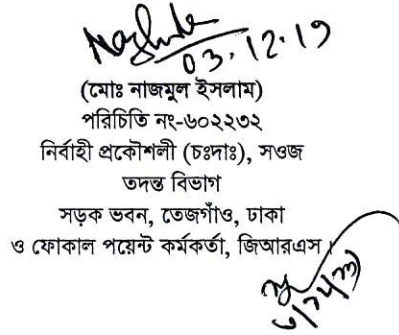 03.12.19
(মোঃ নাজমুল ইসলাম)
পরিচিতি নং-৬০২২৩২
নির্বাহী প্রকৌশলী (চঃদাঃ), সওজ
তদন্ত বিভাগ
সড়ক ভবন, তেজগাঁও, ঢাকা
ও ফোকাল পয়েন্ট কর্মকর্তা, জিআরএস।